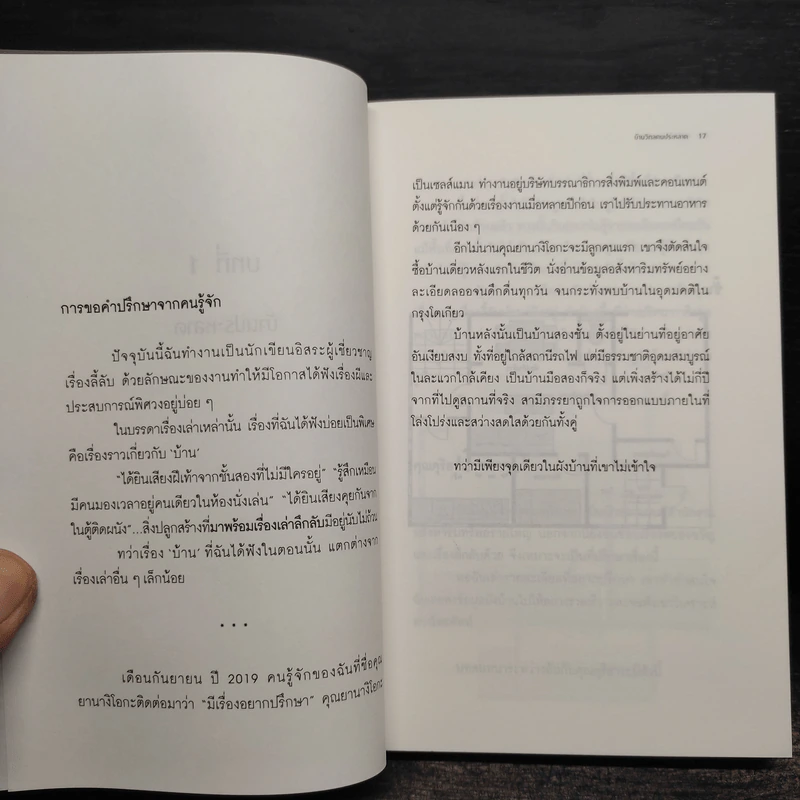 การขอคำปรึกษาจากคนรู้จัก
ปัจจุบันนี้ฉันทำงานเป็นนักเขียนอิสระผู้เชี่ยวชาญ
เรื่องลี้ลับ ด้วยลักษณะของงานทำให้มีโอกาสได้ฟังเรื่องผีและ
ประสบการณ์พิศวงอยู่บ่อย ๆ
ในบรรดาเรื่องเล่าเหล่านั้น เรื่องที่ฉันได้ฟังบ่อยเป็นพิเศษ
คือเรื่องราวเกี่ยวกับ ‘บ้าน’
“ได้ยินเสียงฝีเท้าจากชั้นสองที่ไม่มีใครอยู่” “รู้สึกเหมือน
มีคนมองเวลาอยู่คนเดียวในห้องนั่งเล่น” “ได้ยินเสียงคุยกันจาก
ในตู้ติดผนัง”...สิ่งปลูกสร้างที่มาพร้อมเรื่องเล่าลึกลับมีอยู่นับไม่ถ้วน
ทว่าเรื่อง ‘บ้าน’ ที่ฉันได้ฟังในตอนนั้น แตกต่างจาก
เรื่องเล่าอื่น ๆ เล็กน้อย
...
เดือนกันยายน ปี 2019 คนรู้จักของฉันที่ชื่อคุณ
ยานางิโอกะติดต่อมาว่า “มีเรื่องอยากปรึกษา” คุณยานางิโอกะ
บ้านวิกลคนประหลาด 17
เป็นเซลส์แมน ทำงานอยู่บริษัทบรรณาธิการสิ่งพิมพ์และคอนเทนต์
ตั้งแต่รู้จักกันด้วยเรื่องงานเมื่อหลายปีก่อน เราไปรับประทานอาหาร
ด้วยกันเนือง ๆ
อีกไม่นานคุณยานางิโอกะจะมีลูกคนแรก เขาจึงตัดสินใจ
ซื้อบ้านเดี่ยวหลังแรกในชีวิต นั่งอ่านข้อมูลอสังหาริมทรัพย์อย่าง
ละเอียดลออจนดึกดื่นทุกวัน จนกระทั่งพบบ้านในอุดมคติใน
กรุงโตเกียว
บ้านหลังนั้นเป็นบ้านสองชั้น ตั้งอยู่ในย่านที่อยู่อาศัย
อันเงียบสงบ ทั้งที่อยู่ใกล้สถานีรถไฟ แต่มีธรรมชาติอุดมสมบูรณ์
ในละแวกใกล้เคียง เป็นบ้านมือสองก็จริง แต่เพิ่งสร้างได้ไม่กี่ปี
จากที่ไปดูสถานที่จริง สามีภรรยาถูกใจการออกแบบภายในที่
โล่งโปร่งและสว่างสดใสด้วยกันทั้งคู่
ทว่ามีเพียงจุดเดียวในผังบ้านที่เขาไม่เข้าใจ